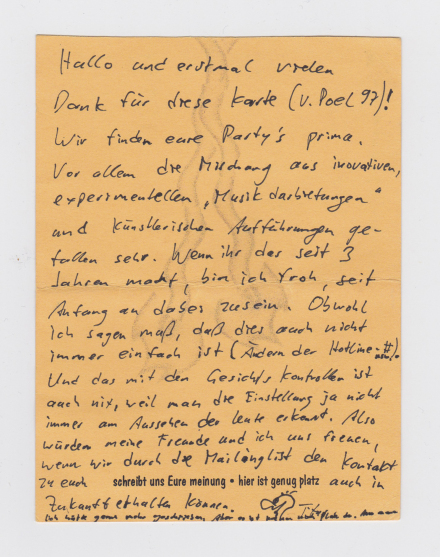 Hallo und erstmal vielen
Dank für diese Karte (v. Poel 97)!
Wir finden eure Party's prima.
Vor allem die Mischung aus inovativen,
experimentellen „Musikdarbietungen"
und künstlerischen Aufführungen ge-
fallen sehr. Wenn ihr das seit 3
Jahren macht, bin ich froh, seit
Anfang an dabei zu sein. Obwohl
ich sagen muß, daß dies auch nicht
immer einfach ist (Ändern der Hotline-#) usw.
Und das mit den Gesichtskontrollen ist
auch nix, weil man die Einstellung ja nicht
immer am Aussehen der Leute erkennt. Also
würden meine Freunde und ich uns freuen,
wenn wir durch die Mailinglist den Kontakt
zu euch schreibt uns Eure meinung • hier ist genug platz auch in
Zukunft erhalten können.
Ich hätte gerne mehr geschrieben, aber